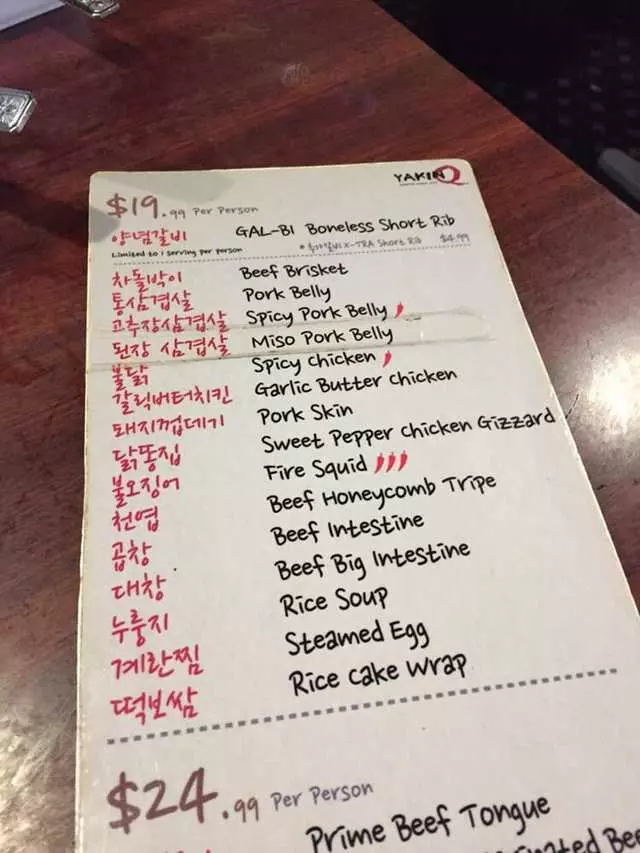 YAKINIQ
$19.99 Per Person
양념갈비 GAL-BI Boneless Short Rib
Limited to 1 serving per person X-TRA Short Rib $4.99
차돌박이 Beef Brisket
통삼겹살 Pork Belly
고추장삼겹살 Spicy Pork Belly
된장 삼겹살 Miso Pork Belly
불닭 Spicy Chicken
갈릭버터치킨 Garlic Butter Chicken
돼지껍데기 Pork Skin
닭똥집 Sweet Pepper Chicken Gizzard
불오징어 Fire Squid
천엽 Beef Honeycomb Tripe
곱창 Beef Intestine
대창 Beef Big Intestine
누룽지 Rice Soup
계란찜 Steamed Egg
떡보쌈 Rice Cake Wrap
$24.99 Per Person
Prime Beef Tongue